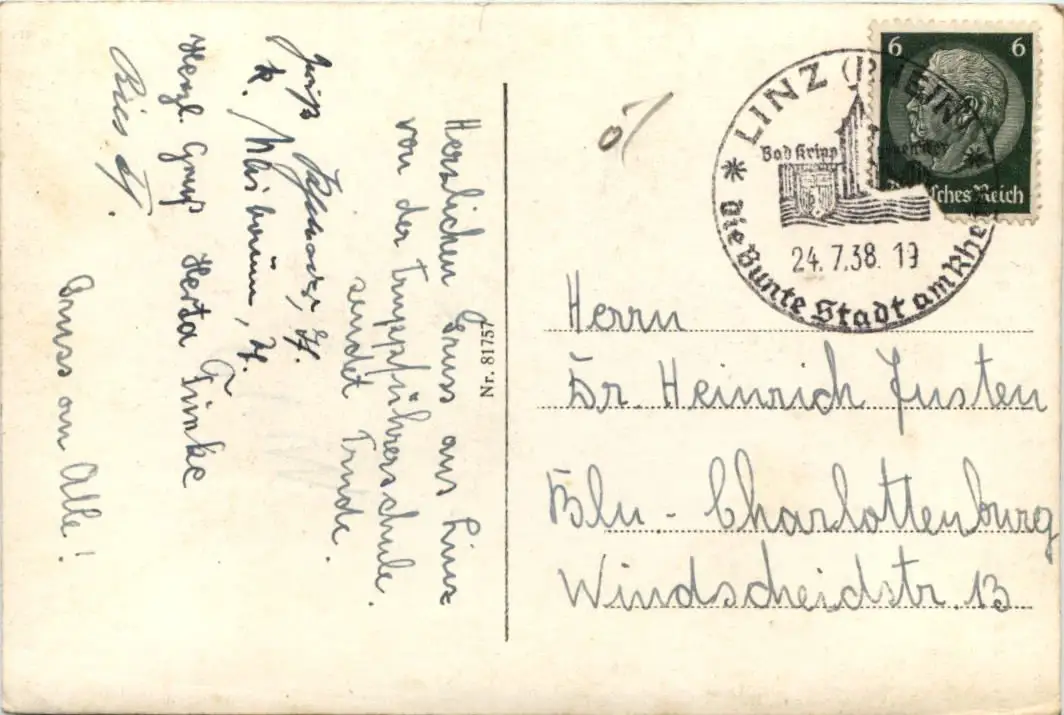 Herzlichen Gruss aus Linz
von der Truppführerschule.
sendet Trude.
Gruß
Herzl. Gruß Herta Timke
Gruss an Alle!
Nr. 81757
6 6
sches Reich
LINZ (RHEIN)
Bad Kripp
24.7.38. 19
Die Bunte Stadt am Rhein
Herrn
Dr. Heinrich Justen
Bln - Charlottenburg
Windscheidstr. 13